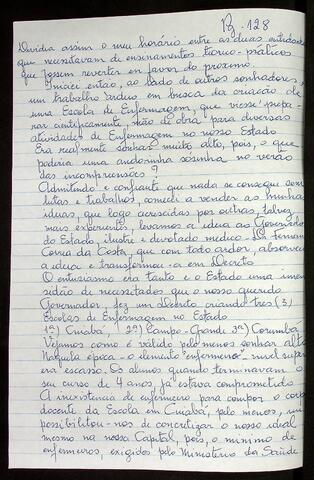 Pg. 128
Dividia assim o meu horário entre as duas entidades
que necessitavam de ensinamentos teórico-práticos
que fossem reverter em favor do próximo.
Iniciei então, ao lado de outros sonhadores,
um trabalho árduo em busca da criação de
uma Escola de Enfermagem, que viesse prepa-
rar cientificamente, mão de obra para diversas
atividades de Enfermagem no nosso Estado
Era realmente sonhar muito alto, pois, o que
poderia uma andorinha sosinha no verão
das incompreensões?
Admitindo e confiante que nada se consegue sem
lutas e trabalhos, comecei a vender as minhas
ideias, que logo acrescidas por outras, talvez
mais experientes, levamos a ideia ao Governador
do Estado, ilustre e devotado medico - Dr Fernando
Correa da Costa, que com todo ardor, absorveu
a ideia e transformou-a em Decreto
O entusiasmo era tanto e o Estado uma imen
sidão de necessitados que o nosso querido
Governador fez um Decreto, criando três (3)
Escolas de Enfermagem no Estado
1ª) Cuiabá, 2ª) Campo-Grande 3ª) Corumbá
Vejamos como é válido pelo menos sonhar alto
Naquela época - o elemento "enfermeiro" nivel super
era escasso. Os alunos quando terminavam o
seu curso de 4 anos já estava comprometido
A inexistencia de enfermeiro para compor o corpo
docente da Escola em Cuiabá, pelo menos, im
possibilitou-nos de concretizar o nosso ideal
mesmo na nossa Capital, pois, o minimo de
enfermeiros, exigidos pelo Ministério da Saúde